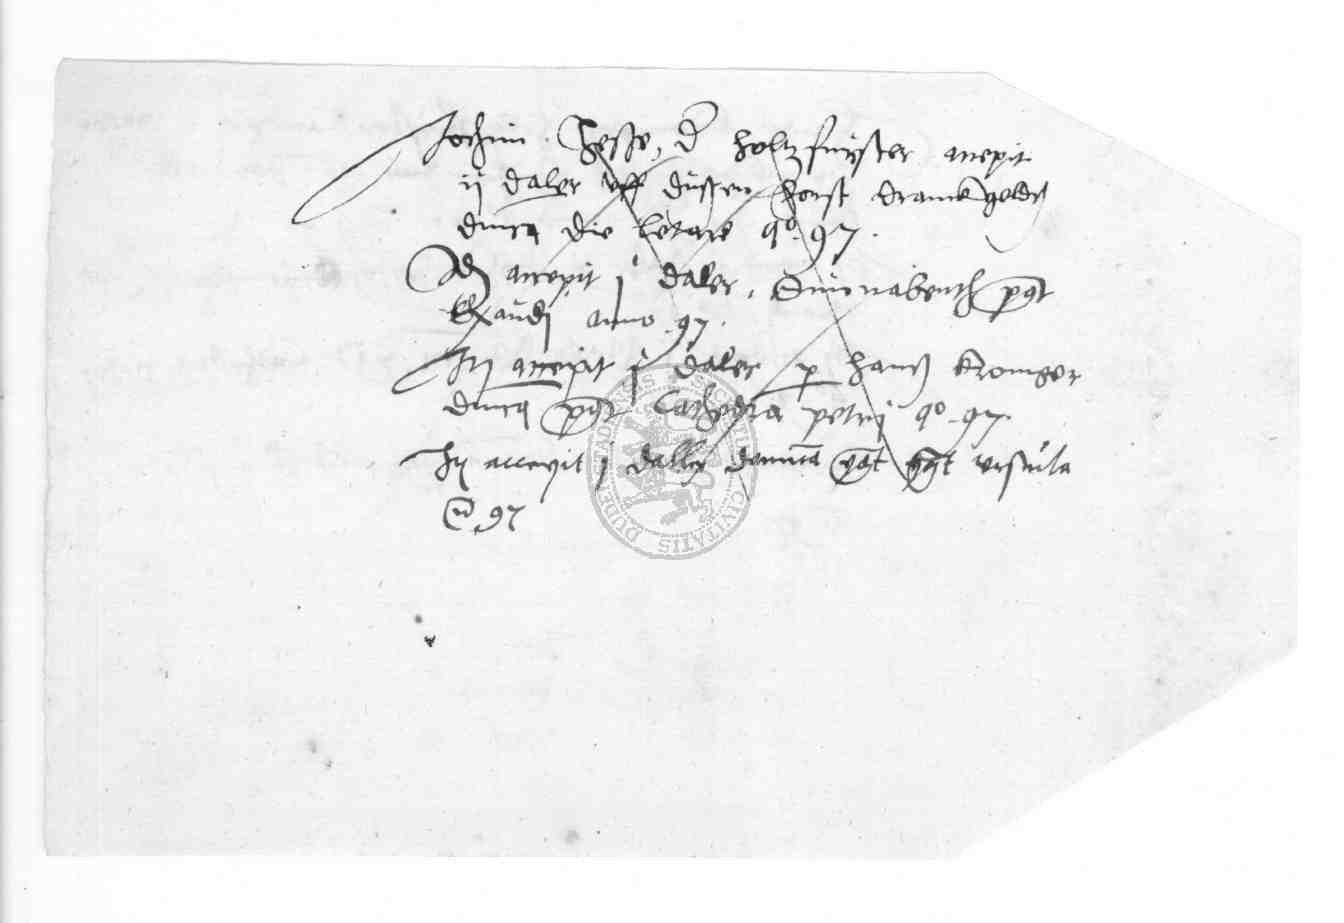 Jochim Hesse, d holtzfurster accepit
ij daler uff dussen horst dranckgeldt
dinca die letare ao. 97.
accepit j daler, Sunnabenth post
Exaudi anno 97.
Itz accepit j daler p hans kroniger
dinca post Cathedra petri ao. 97.
Itz accepit j daller dominica post ursula
97
SIGILLUM CIVITATIS DUDERSTADENSIS